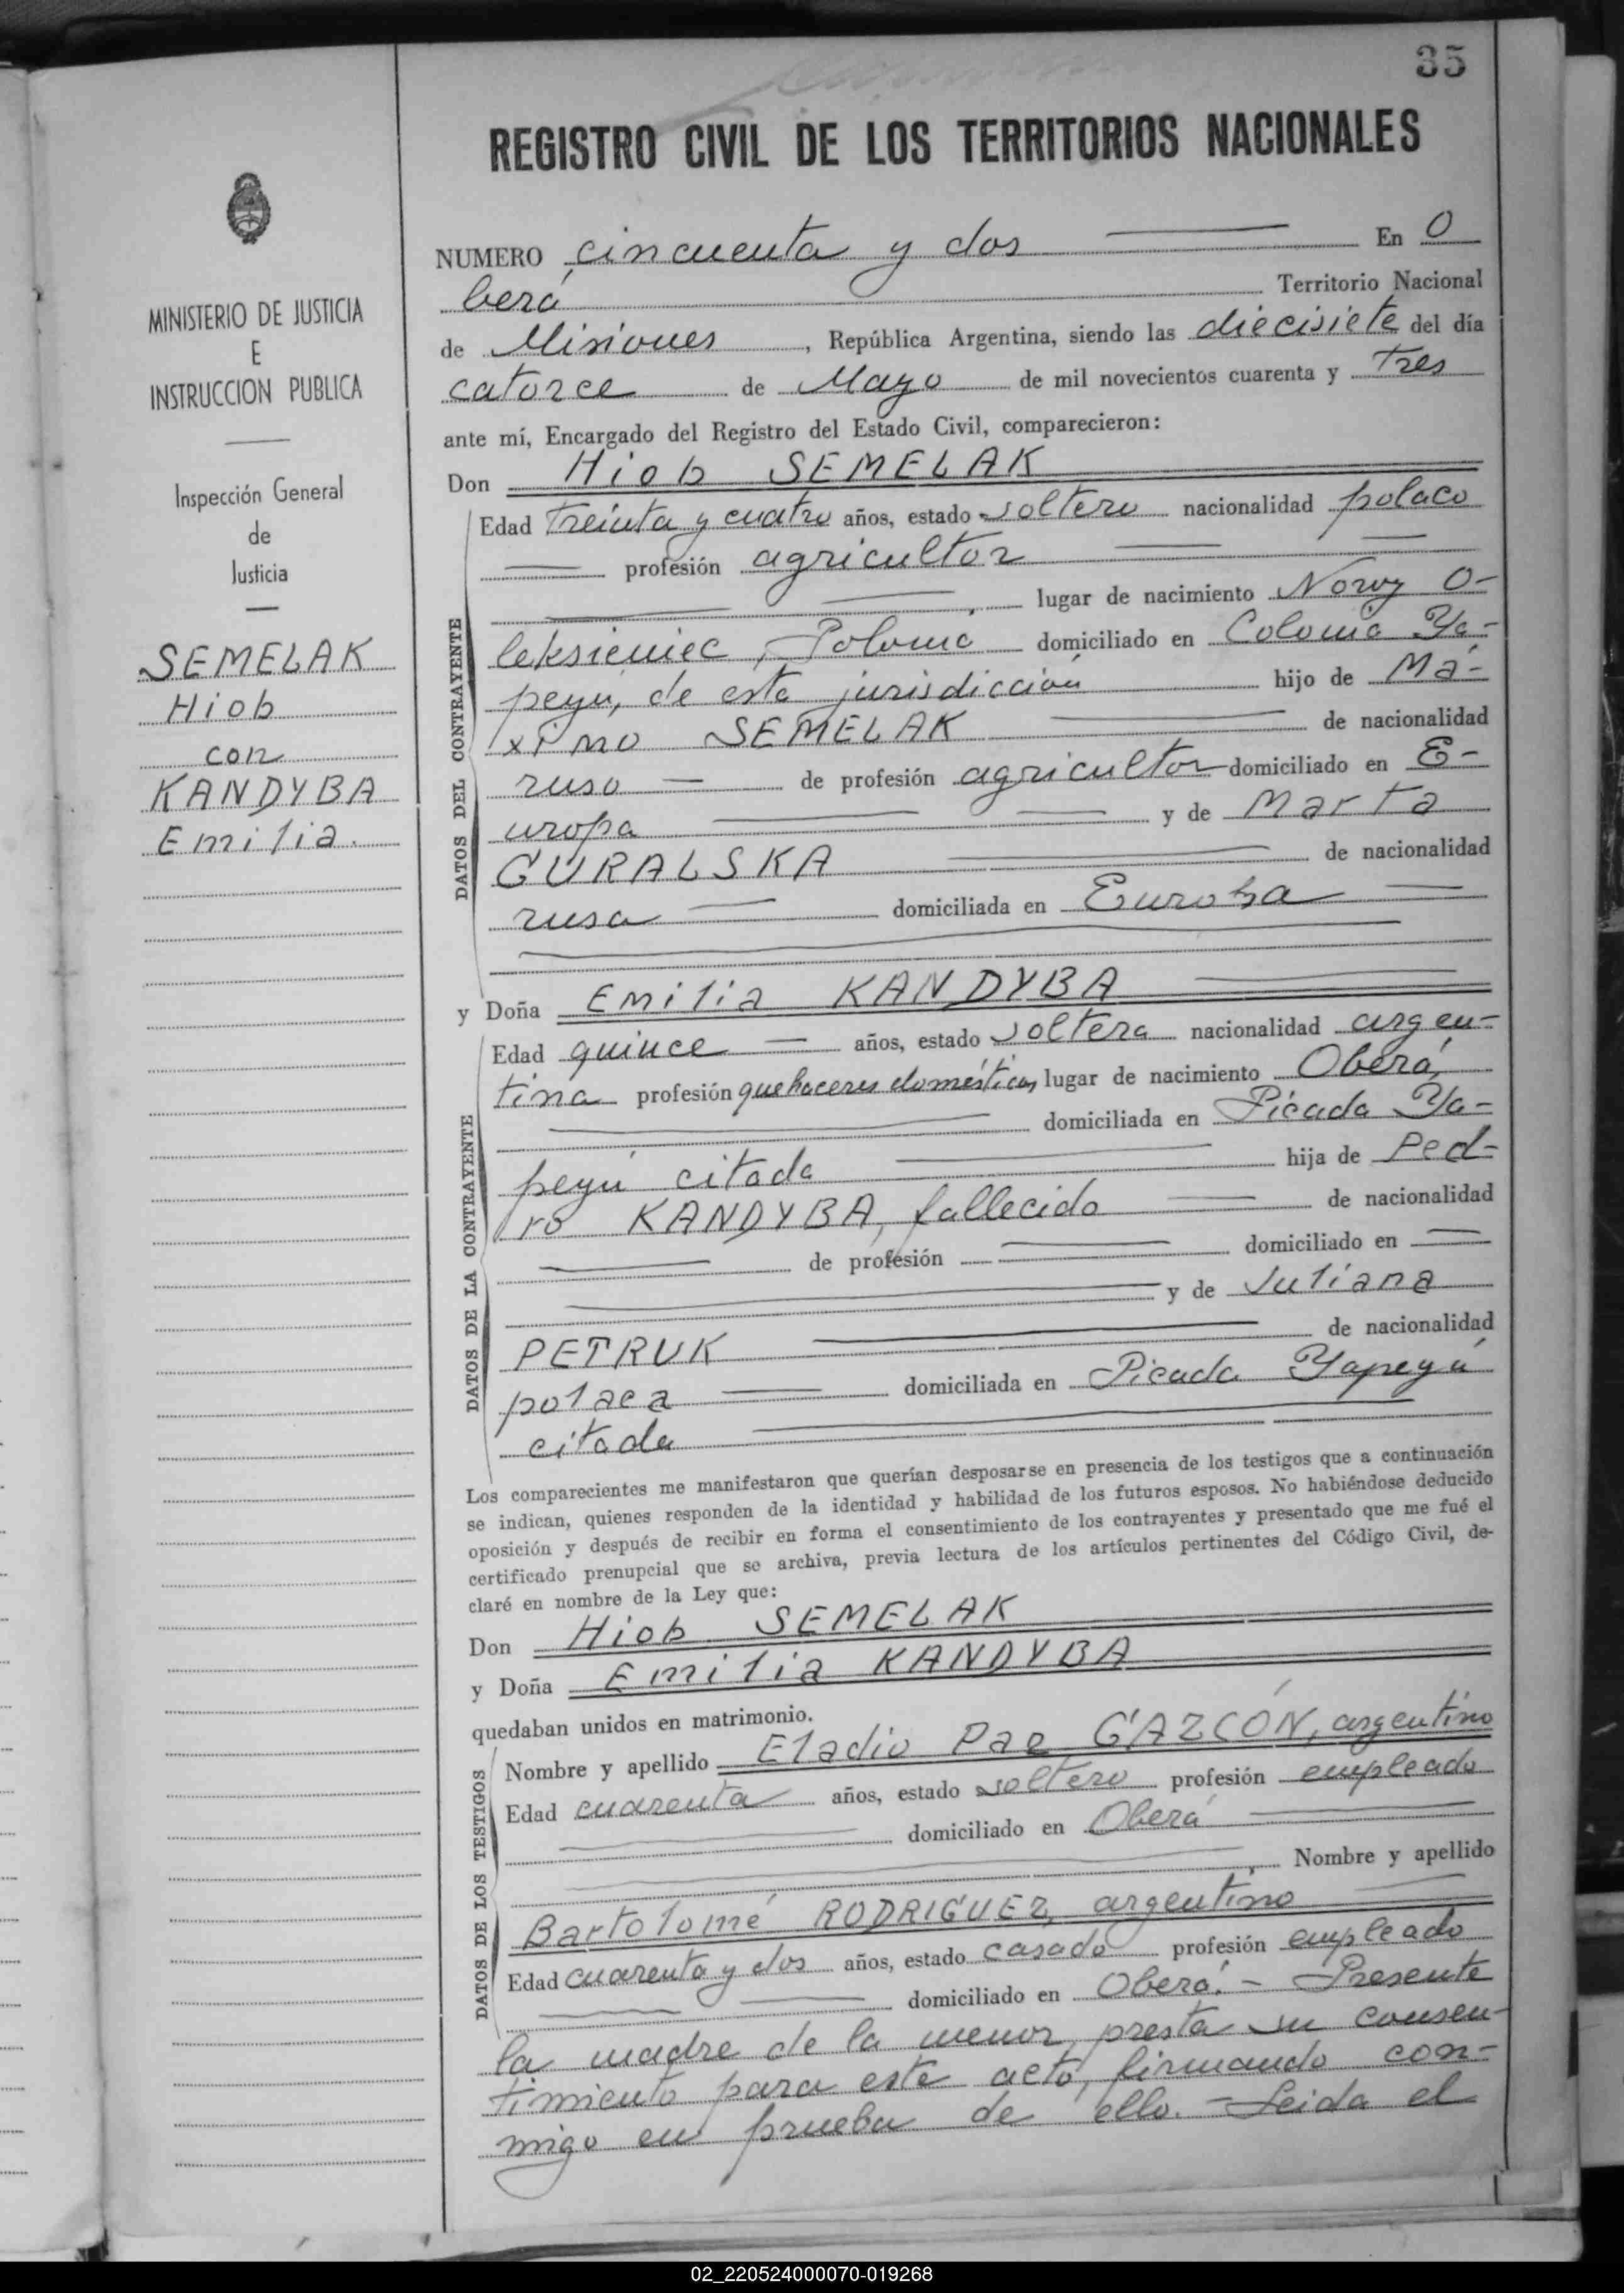 35
REGISTRO CIVIL DE LOS TERRITORIOS NACIONALES
MINISTERIO DE JUSTICIA
E
INSTRUCCION PUBLICA
Inspección General
de
Justicia
SEMELAK
Hiob
con
KANDYBA
Emilia.
NUMERO cincuenta y dos En O
berá Territorio Nacional
de Misiones, República Argentina, siendo las diecisiete del día
catorce de Mayo de mil novecientos cuarenta y tres
ante mí, Encargado del Registro del Estado Civil, comparecieron:
Don Hiob SEMELAK
DATOS DEL CONTRAYENTE
Edad treinta y cuatro años, estado soltero nacionalidad polaco
profesión agricultor
lugar de nacimiento Nowy O-
leksieniec, Polonia domiciliado en Colonia Ya-
peyú, de esta jurisdicción hijo de Má-
ximo SEMELAK de nacionalidad
ruso de profesión agricultor domiciliado en E-
uropa y de Marta
GURALSKA de nacionalidad
rusa domiciliada en Europa
y Doña Emilia KANDYBA
DATOS DE LA CONTRAYENTE
Edad quince años, estado soltera nacionalidad argen-
tina profesión quehaceres domésticos, lugar de nacimiento Oberá,
domiciliada en Picada Ya-
peyú citada hija de Ped-
ro KANDYBA, fallecido de nacionalidad
de profesión domiciliado en
y de Juliana
PETRUK de nacionalidad
polaca domiciliada en Picada Yapeyú
citada
Los comparecientes me manifestaron que querían desposarse en presencia de los testigos que a continuación
se indican, quienes responden de la identidad y habilidad de los futuros esposos. No habiéndose deducido
oposición y después de recibir en forma el consentimiento de los contrayentes y presentado que me fué el
certificado prenupcial que se archiva, previa lectura de los artículos pertinentes del Código Civil, de-
claré en nombre de la Ley que:
Don Hiob SEMELAK
y Doña Emilia KANDYBA
quedaban unidos en matrimonio.
DATOS DE LOS TESTIGOS
Nombre y apellido Eladio Pae GAZCÓN, argentino
Edad cuarenta años, estado soltero profesión empleado
domiciliado en Oberá
Nombre y apellido
Bartolomé RODRIGUEZ, argentino
Edad cuarenta y dos años, estado casado profesión empleado
domiciliado en Oberá.- Presente
la madre de la menor, presta su consen-
timiento para este acto, firmando con-
migo en prueba de ello.- Leida el
02_220524000070-019268